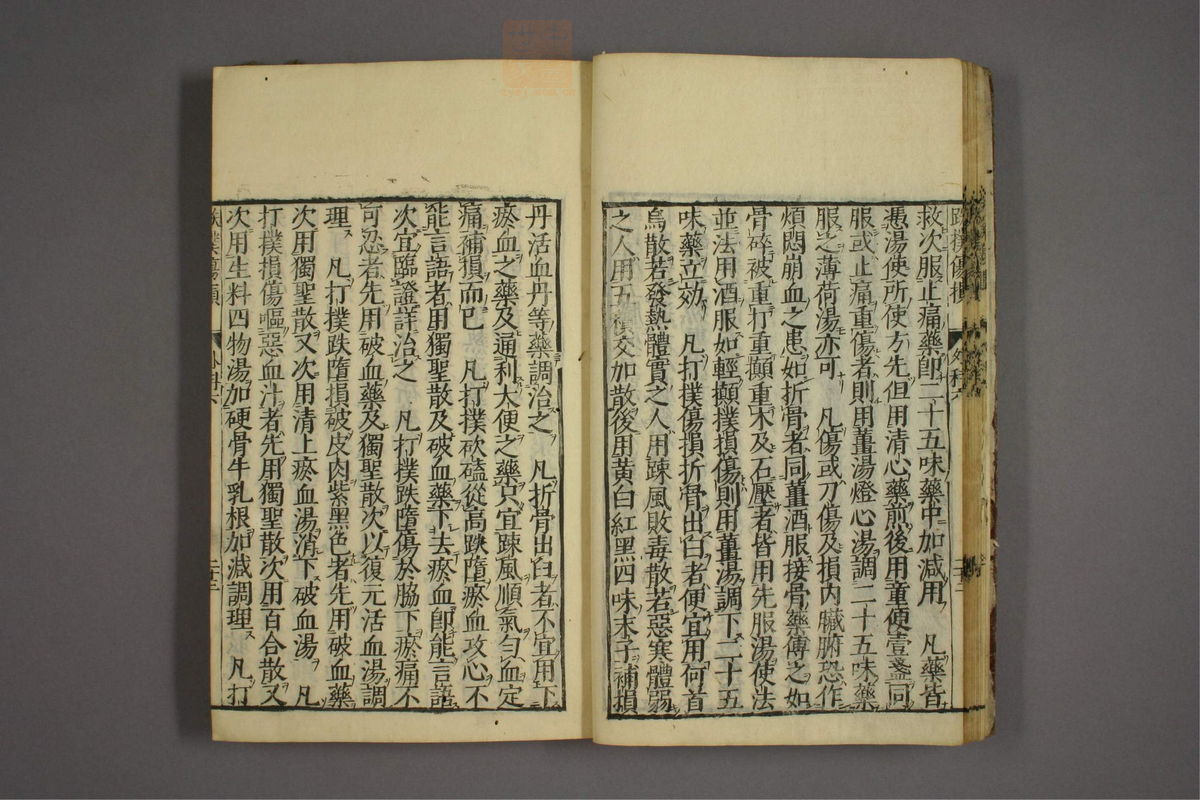 救次服止痛藥卽二十五味藥中加減用　凡藥皆
憑湯使所使方先但用清心藥煎後用童便壹盞同
服或止痛重傷者則用薑湯燈心湯調二十五味藥
服之薄荷湯亦可　凡傷或刀傷及損內臟腑恐作
煩悶崩血之患如折骨者同薑酒服接骨藥傅之如
骨碎被重打重攧重木及石壓者皆用先服湯使法
並法用酒服如輕攧撲損傷則用薑湯調下二十五
味藥立効　凡打撲傷損折骨出臼者便宜用何首
烏散若發熱體實之人用踈風敗毒散若惡寒體弱
之人用五積交加散後用黃白紅黑四味末子補損
丹活血丹等藥調治之　凡折骨出臼者不宜用下
瘀血之藥及通利大便之藥只宜踈風順氣匀血定
痛補損而已　凡打撲砍磕從高跌墮瘀血攻心不
能言語者用獨聖散及破血藥下去瘀血卽能言語
次宜臨證詳治之　凡打撲跌墮傷於脇下瘀痛不
可忍者先用破血藥及獨聖散次以復元活血湯調
理　凡打撲跌墮損被皮肉紫黑色者先用破血藥
次用獨聖散又次用清上瘀血湯消下破血湯　凡
打撲損傷嘔惡血汁者先用獨聖散次用百合散又
次用生料四物湯加硬骨牛乳根加減調理　凡打